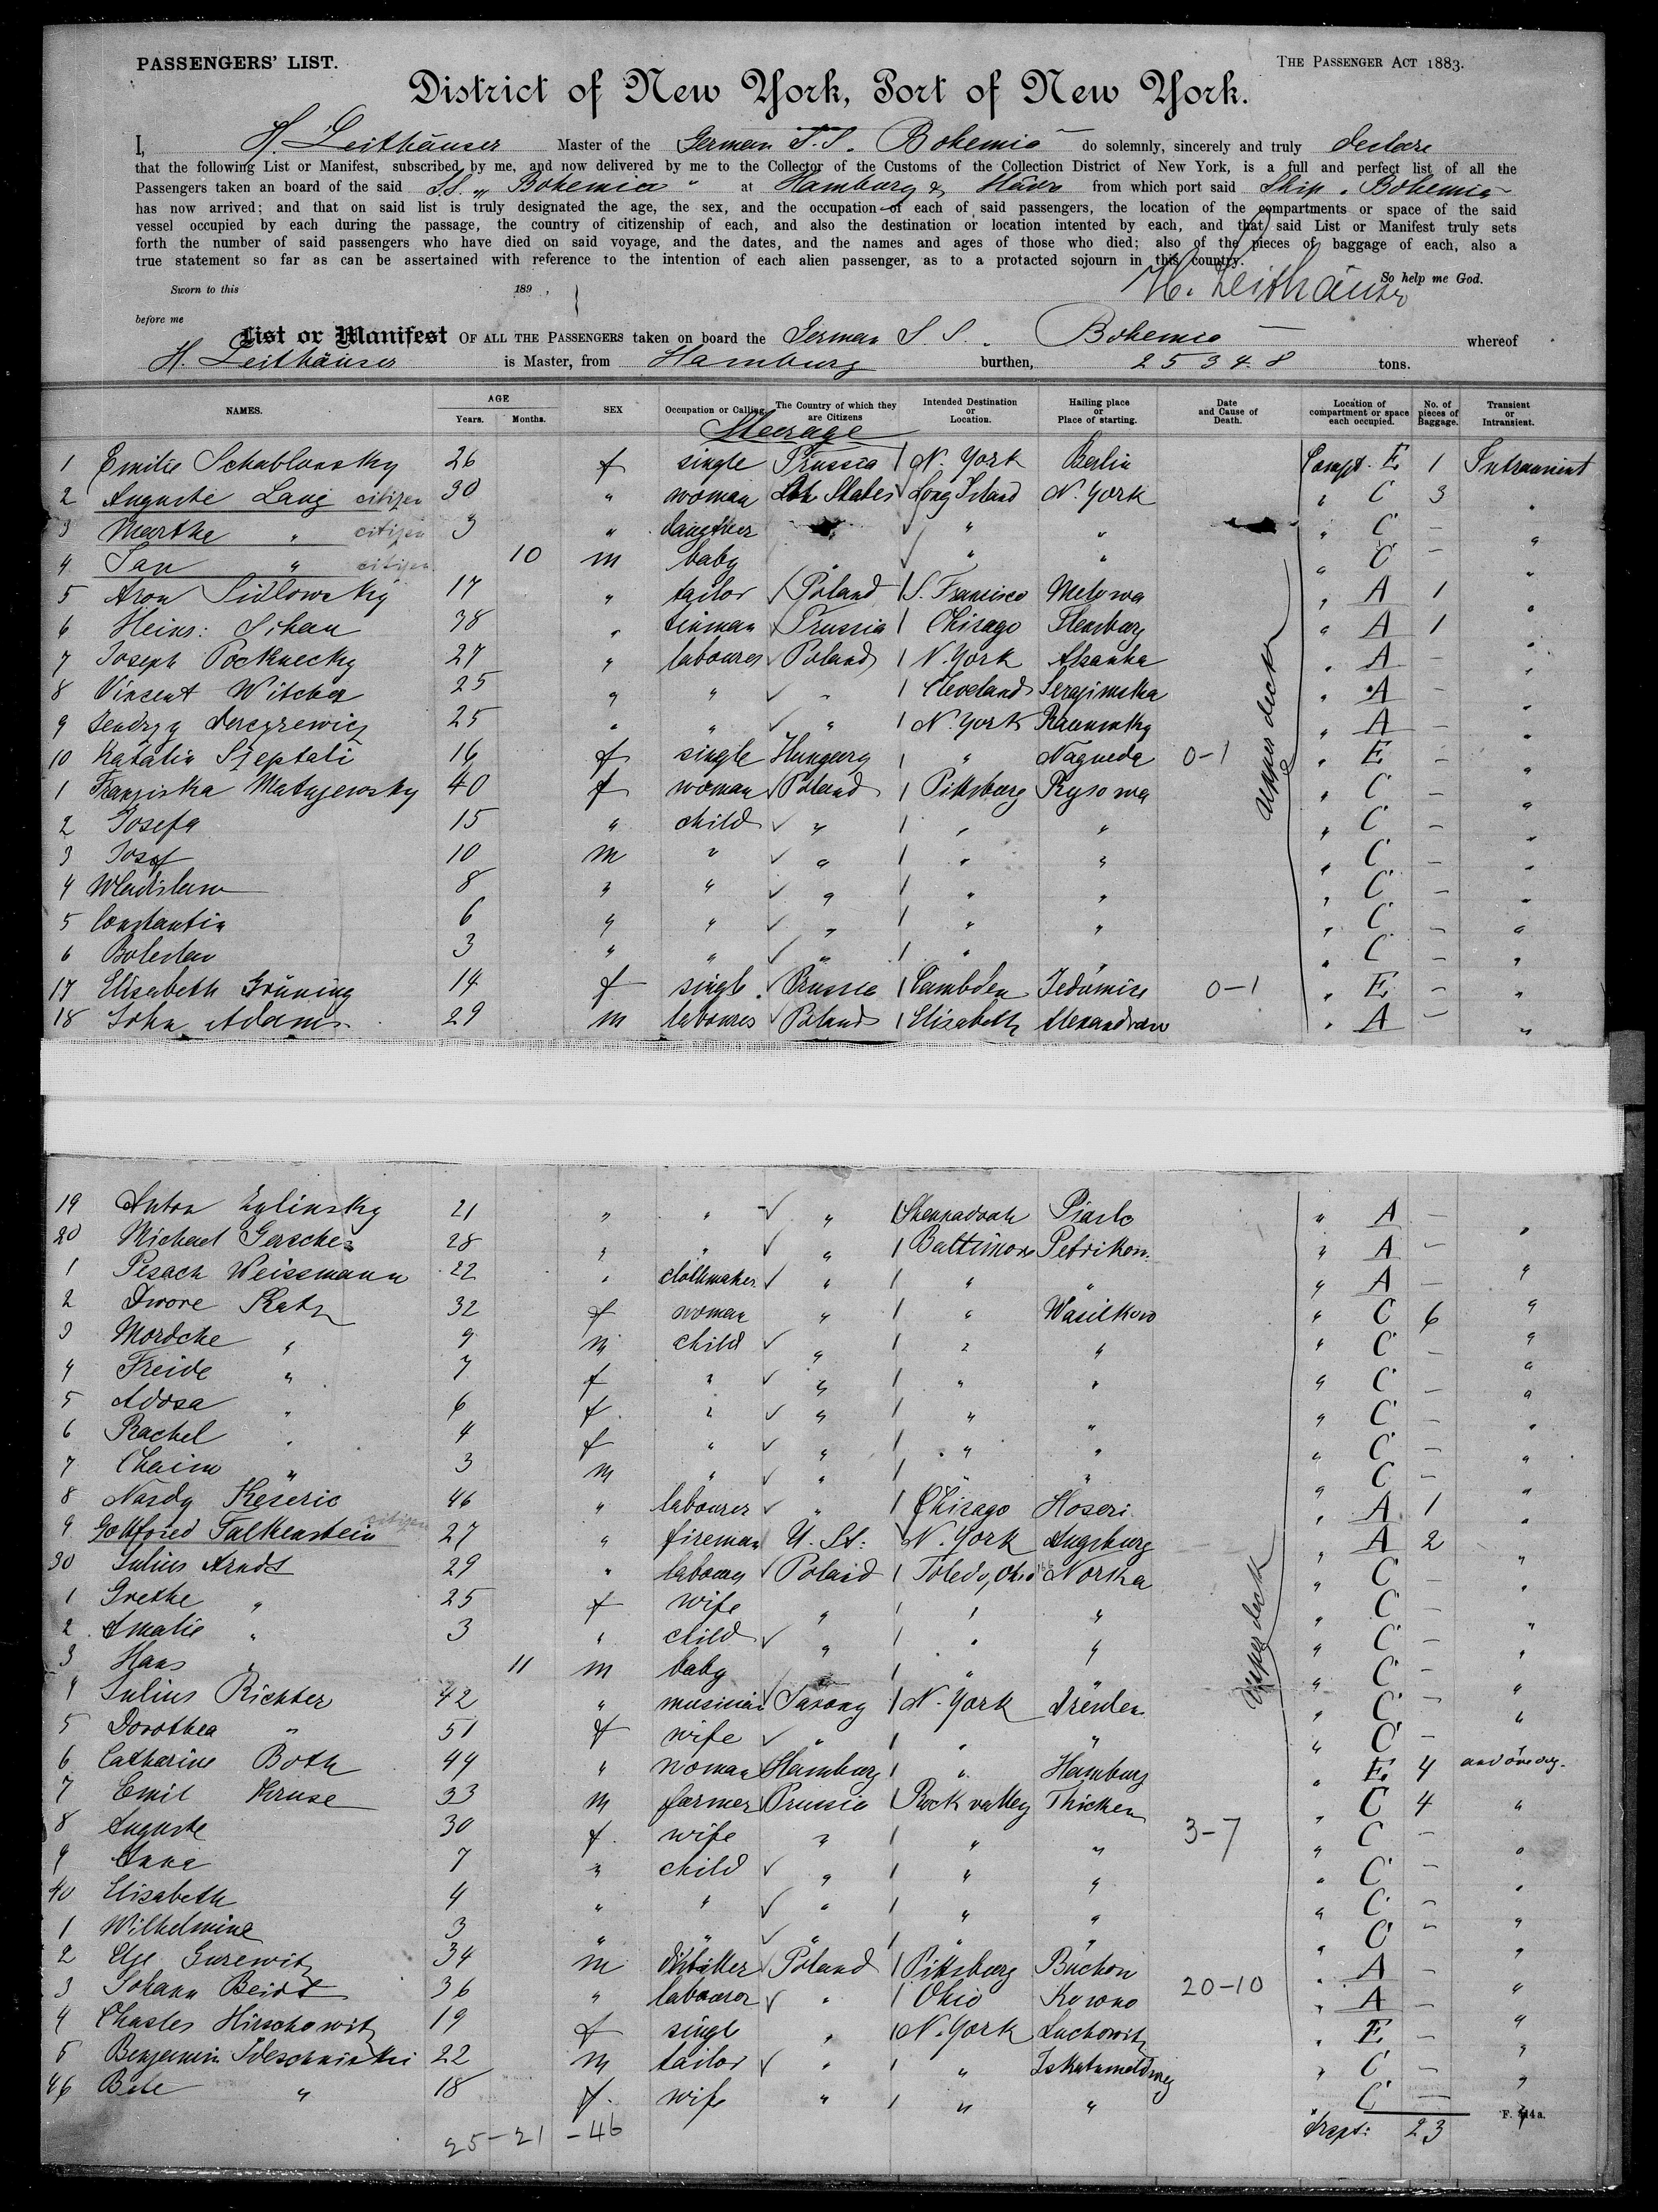 PASSENGERS' LIST.
THE PASSENGER ACT 1883.
District of New York, Port of New York.
I, H. Leithäuser Master of the German S.S. Bohemia do solemnly, sincerely and truly declare
that the following List or Manifest, subscribed by me, and now delivered by me to the Collector of the Customs of the Collection District of New York, is a full and perfect list of all the
Passengers taken an board of the said S.S. „ Bohemia " at Hamburg & Havre from which port said Ship „ Bohemia
has now arrived; and that on said list is truly designated the age, the sex, and the occupation of each of said passengers, the location of the compartments or space of the said
vessel occupied by each during the passage, the country of citizenship of each, and also the destination or location intented by each, and that said List or Manifest truly sets
forth the number of said passengers who have died on said voyage, and the dates, and the names and ages of those who died; also of the pieces of baggage of each, also a
true statement so far as can be assertained with reference to the intention of each alien passenger, as to a protacted sojourn in this country.
So help me God.
H. Leithäuser
Sworn to this 189 ,
before me
List or Manifest OF ALL THE PASSENGERS taken on board the German S.S. Bohemia whereof
H. Leithäuser is Master, from Hamburg burthen, 2534.8 tons.
NAMES. AGE Years. Months. SEX Occupation or Calling. The Country of which they are Citizens Intended Destination or Location. Hailing place or Place of starting. Date and Cause of Death. Location of compartment or space each occupied. No. of pieces of Baggage. Transient or Intransient.
Steerage
1 Emilie Schablonsky 26 f single Prussia N. York Berlin Compt. E 1 Intransient
2 Auguste Lang citizen 30 " woman States Long Island N. York " C 3 "
3 Marthe " citizen 3 " daugther " " " C — "
4 Jan " citizen 10 m baby " " " " C — "
5 Aron Sidlowsky 17 " tailor Poland S. Francisco " A 1 "
6 Heinr: Schau 38 " tinman Prussia Chicago Flensburg " A 1 "
7 Joseph Pocknecky 27 " labourer Poland N. York " A — "
8 Vinzent Witcher 25 " " " Cleveland " A — "
9 25 " " " N. York " A — "
10 Katalin Szeptali 16 f single Hungary " 0-1 " E — "
1 Franziska Matujewsky 40 f woman Poland Pittsburg Rysowa " C — "
2 Josefa 15 " child " " " " C — "
3 Josef 10 m " " " " " C — "
4 Wladislaw 8 " " " " " " C — "
5 Constantin 6 " " " " " " C — "
6 Boleslaw 3 " " " " " " C — "
17 Elisabeth Grüning 14 f single Prussia Cambden 0-1 " E — "
18 John Adams 29 m labourer Poland Elisabeth " A — "
upper deck
19 Anton Zylinsky 21 " " " Shennadoah " A — "
20 Michael 28 " " " Baltimore Petrikow " A — "
1 Pesach Weissmann 22 " clothmaker " " " " A — "
2 Dwore Katz 32 f woman " " Wasilkow " C 6 "
3 Mordche " 9 m child " " " " C — "
4 Freide " 7 f " " " " " C — "
5 Adosa " 6 f " " " " " C — "
6 Rachel " 4 f " " " " " C — "
7 Chaim " 3 m " " " " " C — "
8 Nasdy Keseric 46 " labourer " Chicago Hoseri " A 1 "
9 Gottfried Falkenstein citizen 27 " fireman U. St: N. York Augsburg " A 2 "
30 Julius Arndt 29 " labourer Poland Toledo, Ohio Norka " C — "
1 Grethe " 25 f wife " " " " C — "
2 Amalie " 3 " child " " " " C — "
3 Hans " 11 m baby " " " " C — "
4 Julius Richter 42 " musician Saxony N. York Dresden " C — "
5 Dorothea " 51 f wife " " " " C — "
6 Catharine Both 44 " woman Hamburg " Hamburg " E 4
7 Emil Kruse 33 m farmer Prussia Rock valley Thicken " C 4 "
8 Auguste 30 f wife " " " 3-7 " C — "
9 Anna 7 " child " " " " C — "
40 Elisabeth 4 " " " " " " C — "
1 Wilhelmine 3 " " " " " " C — "
2 Gurewitz 34 m Poland Pittsburg " A — "
3 Johann Beidt 36 " labourer " Ohio Kowno 20-10 " A — "
4 Chasles Hirschowitz 19 f single " N. York Luchowitz " E — "
5 Benjamin 22 m tailor " " " C — "
46 Bele " 18 f. wife " " " " C —
upper deck
25-21-46
23
F. 414a.